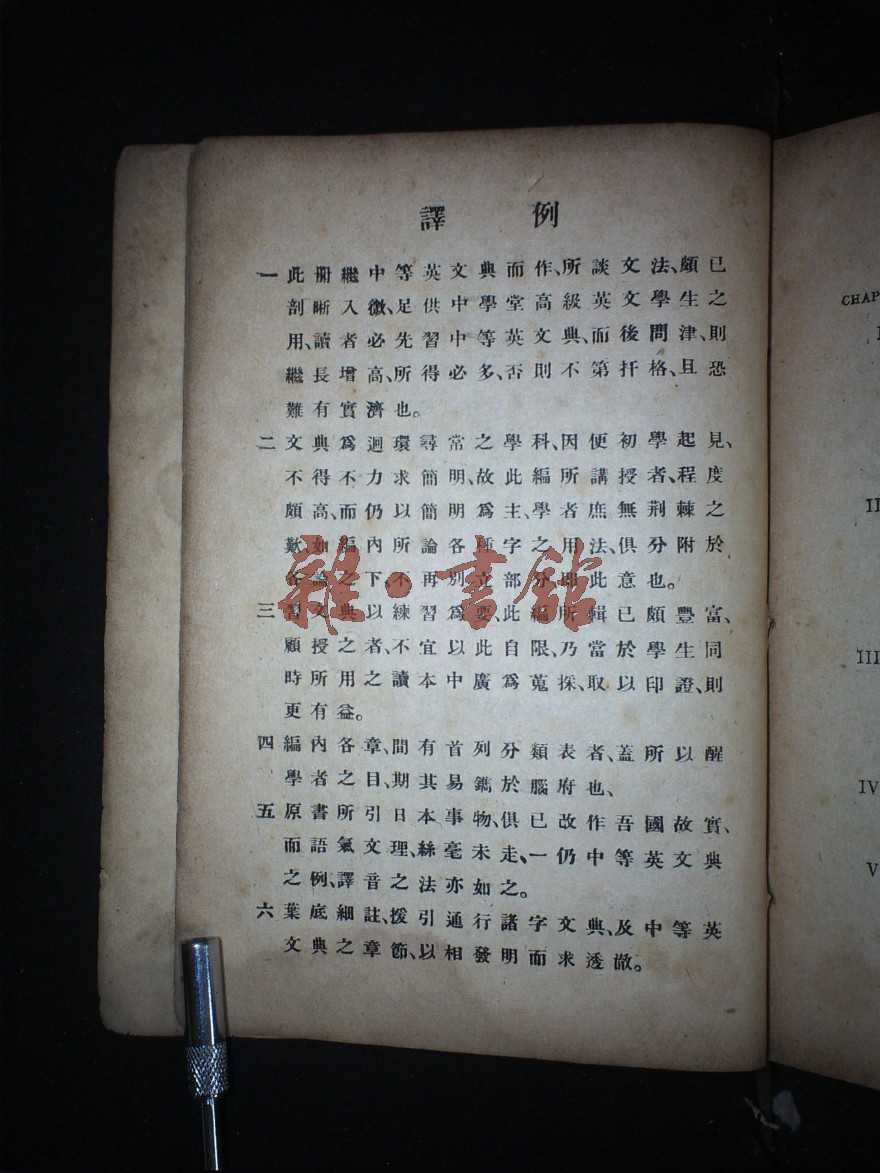 譯 例
一 此册繼中等英文典而作、所談文法、頗已
剖晰入微、足供中學堂高級英文學生之
用、讀者必先習中等英文典、而後問津、則
繼長增高、所得必多、否則不第扞格、且恐
難有實濟也。
二 文典爲迴環尋常之學科、因便初學起見、
不得不力求簡明、故此編所講授者、程度
頗高、而仍以簡明爲主、學者庶無荆棘之
歎、如編內所論各種字之用法、俱分附於
各論之下、不再別立部分、即此意也。
三 習文典以練習爲要、此編所輯已頗豐富、
顧授之者、不宜以此自限、乃當於學生同
時所用之讀本中廣爲蒐採、取以印證、則
更有益。
四 編內各章、間有首列分類表者、蓋所以醒
學者之目、期其易鐫於腦府也、
五 原書所引日本事物、俱已改作吾國故實、
而語氣文理、絲毫未走、一仍中等英文典
之例、譯音之法亦如之。
六 葉底細註、援引通行諸字文典、及中等英
文典之章節、以相發明而求透澈。
雜·書館
CHAP
I
II
III
IV
V